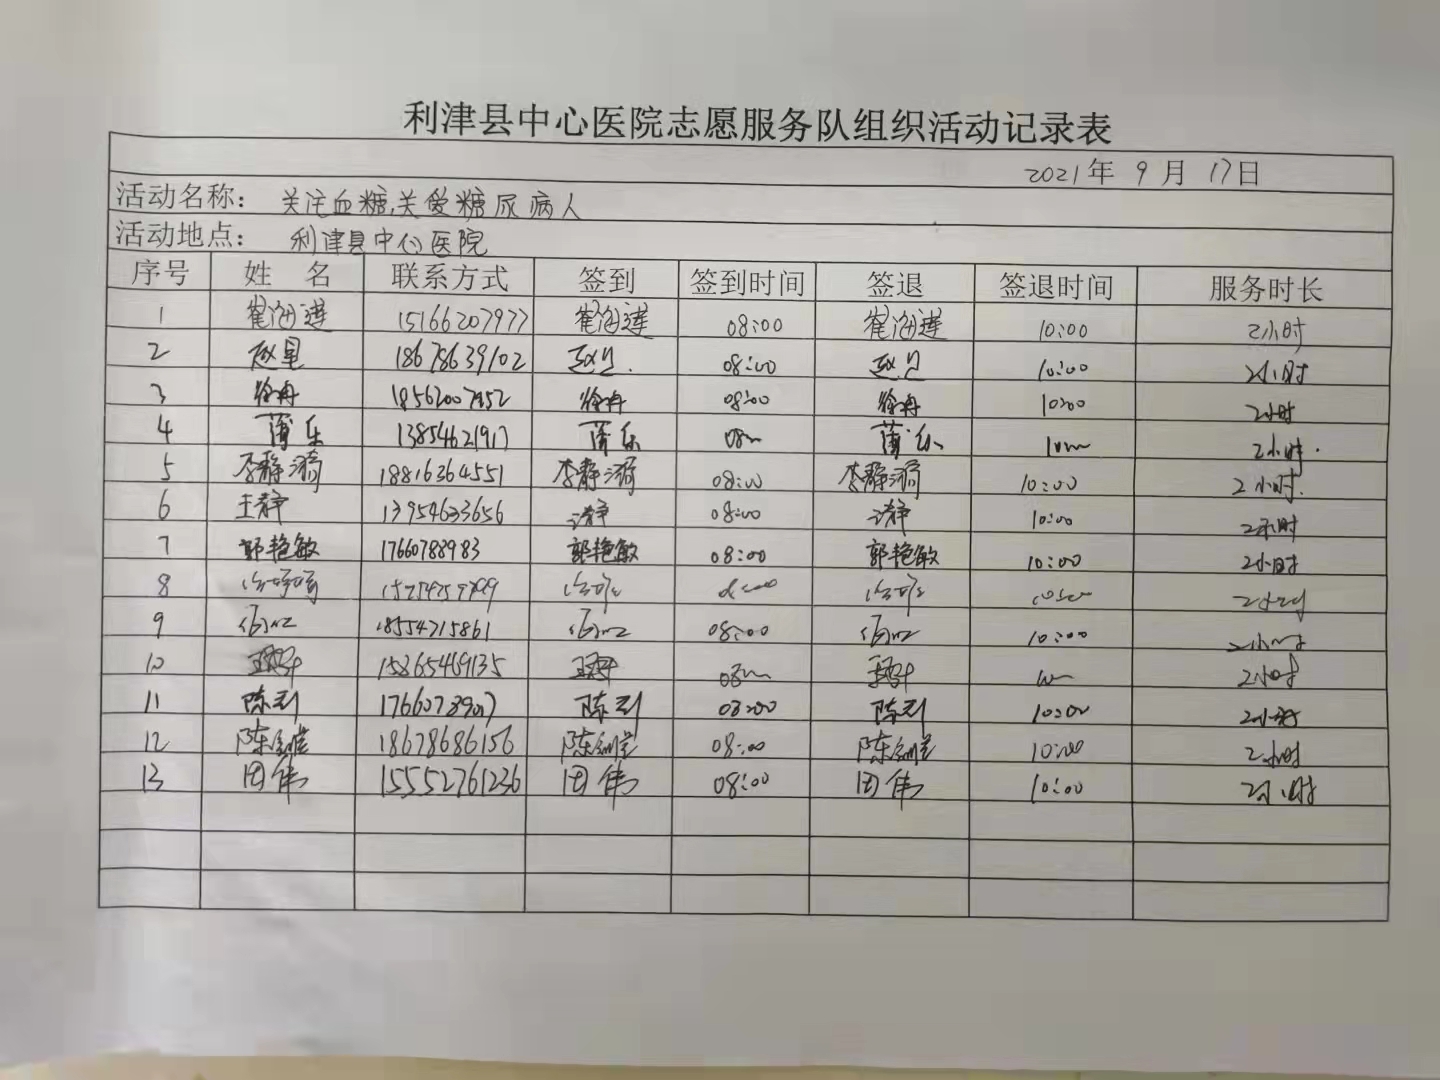 利津县中心医院志愿服务队组织活动记录表
2021年 9月 17日
活动名称： 关注血糖,关爱糖尿病人
活动地点： 利津县中心医院
序号 姓 名 联系方式 签到 签到时间 签退 签退时间 服务时长
1 崔海莲 15166207977 崔海莲 08:00 崔海莲 10:00 2小时
2 赵星 18678639102 08:00 10:00 2小时
3 徐冉 徐冉 08:00 徐冉 10:00 2小时
4 蒲乐 13854621917 蒲乐 蒲乐 2小时.
5 李静漪 18816364551 李静漪 08:00 李静漪 10:00 2小时.
6 王静 13954633656 08:00 10:00 2小时
7 郭艳敏 17660788983 郭艳敏 08:00 郭艳敏 10:00 2小时
8 2小时
9 18554715861 08:00 10:00 2小时
10 15865469135 2小时
11 陈列 陈列 08:00 陈列 10:00 2小时
12 18678686156 08:00 10:00 2小时
13 田伟 15552761236 田伟 08:00 田伟 10:00 2小时